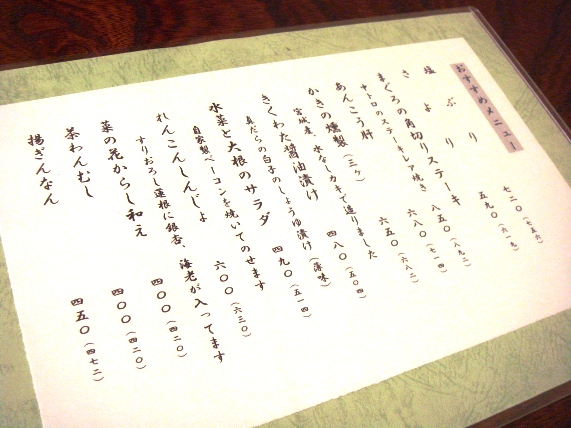 おすすめメニュー
塩ぶり 七二〇(七五六)
さより 五九〇(六一九)
まぐろの角切りステーキ 八五〇(八九二)
中トロのステーキレア焼き
あんこう肝 六八〇(七一四)
かきの燻製(三ヶ) 六五〇(六八二)
宮城産、水なしカキで造りました
きくわた醤油漬け 四八〇(五〇四)
真だらの白子のしょうゆ漬け(薄味)
水菜と大根のサラダ 四九〇(五一四)
自家製ベーコンを焼いてのせます
れんこんしんじょ 六〇〇(六三〇)
すりおろし蓮根に銀杏、海老が入ってます
菜の花からし和え 四〇〇(四二〇)
茶わんむし 四〇〇(四二〇)
揚ぎんなん 四五〇(四七二)